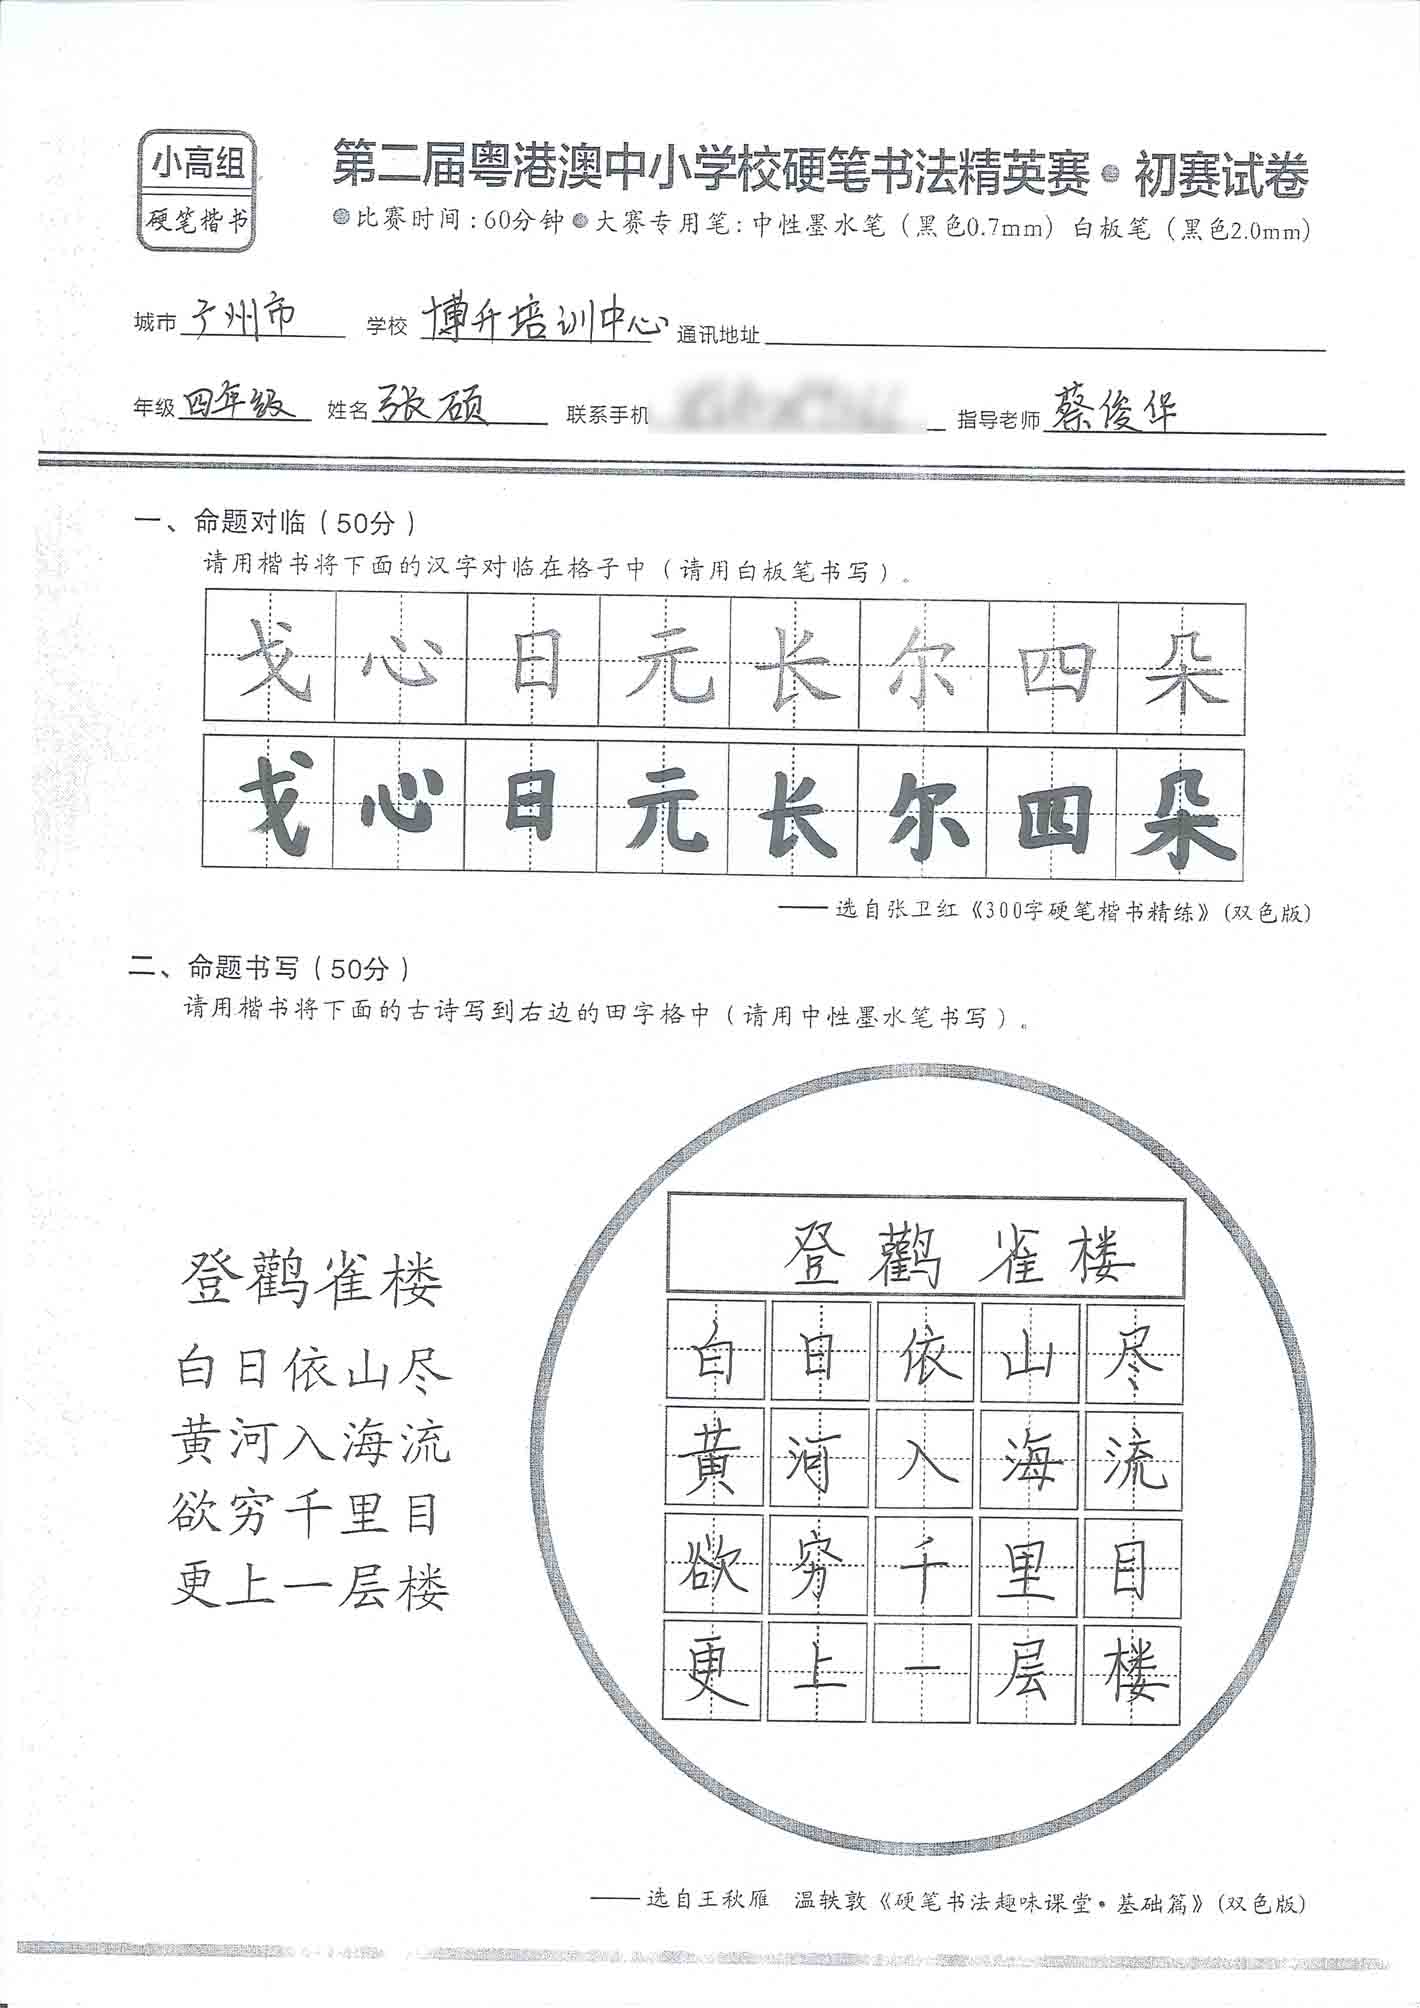 小高组
硬笔楷书
第二届粤港澳中小学校硬笔书法精英赛•初赛试卷
●比赛时间:60分钟●大赛专用笔:中性墨水笔(黑色0.7mm)白板笔(黑色2.0mm)
城市 广州市 学校 博升培训中心 通讯地址
年级 四年级 姓名 张硕 联系手机 指导老师 蔡俊华
一、命题对临(50分)
请用楷书将下面的汉字对临在格子中(请用白板笔书写)。
戈心日元长尔四朵
戈心日元长尔四朵
——选自张卫红《300字硬笔楷书精练》(双色版)
二、命题书写(50分)
请用楷书将下面的古诗写到右边的田字格中(请用中性墨水笔书写)。
登鹳雀楼
白日依山尽
黄河入海流
欲穷千里目
更上一层楼
登鹳雀楼
白日依山尽
黄河入海流
欲穷千里目
更上一层楼
——选自王秋雁 温轶敦《硬笔书法趣味课堂•基础篇》(双色版)